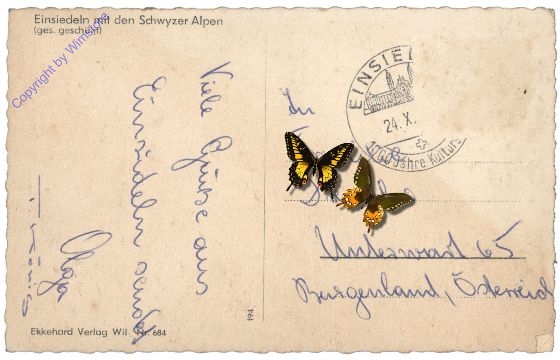 Einsiedeln mit den Schwyzer Alpen
(ges. gesch.)
Copyright by Wimstore
Viele Grüße aus
Einsiedeln sendet
Olga
An
EINSIE
24.X.
1000 Jahre Kultur
Unterwart 65
Burgenland, Österreich
194
Ekkehard Verlag Wil Nr. 684